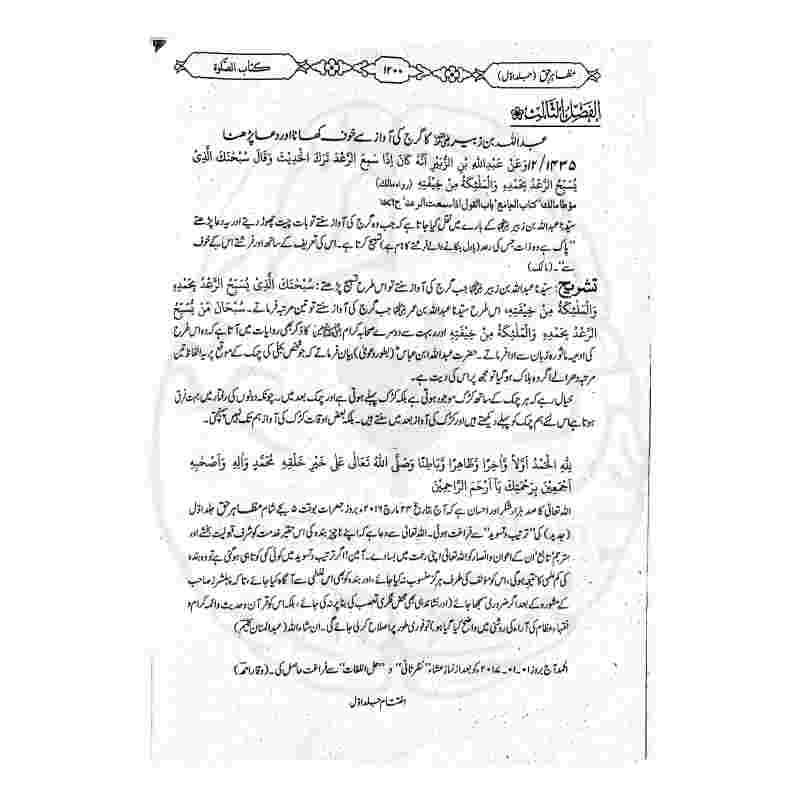 مظاہر حق (جلد اوّل) ۱۲۰۰ کتاب الصلوٰۃ
الفصل الثالث
عبداللہ بن زبیر رضی اللہ عنہ کا گرج کی آواز سے خوف کھانا اور دعا پڑھنا
۱۲/۱۴۳۵ وَعَنْ عَبْدِاللهِ بْنِ الزُّبَيْرِ اَنَّهُ كَانَ اِذَا سَمِعَ الرَّعْدَ تَرَكَ الْحَدِيْثَ وَقَالَ سُبْحٰنَكَ الَّذِىْ
يُسَبِّحُ الرَّعْدُ بِحَمْدِهٖ وَالْمَلٰئِكَةُ مِنْ خِيْفَتِهٖ (رواہ مالک)
مؤطا مالک' کتاب الجامع' باب القول اذا سمعت الرعد' ح
سیّدنا عبداللہ بن زبیر کے بارے میں نقل کیا جاتا ہے کہ جب وہ گرج کی آواز سنتے تو بات چیت چھوڑ دیتے اور یہ دعا پڑھتے
''پاک ہے وہ ذات جس کی رعد (بادل ہنکانے والے فرشتے کا نام ہے) تسبیح کرتا ہے۔ اس کی تعریف کے ساتھ اور فرشتے اس کے خوف
سے''۔ (مالک)
تشریح : سیّدنا عبداللہ بن زبیر جب گرج کی آواز سنتے تو اس طرح تسبیح پڑھتے: سُبْحٰنَكَ الَّذِىْ يُسَبِّحُ الرَّعْدُ بِحَمْدِهٖ
وَالْمَلٰئِكَةُ مِنْ خِيْفَتِهٖ، اس طرح سیّدنا عبداللہ بن عمر جب گرج کی آواز سنتے تو تین مرتبہ فرماتے۔ سُبْحَانَ مَنْ يُسَبِّحُ
الرَّعْدُ بِحَمْدِهٖ وَالْمَلٰئِكَةُ مِنْ خِيْفَتِهٖ اور بہت سے دوسرے صحابہ کرام کا ذکر بھی روایات میں آتا ہے کہ وہ اس طرح
کی ادعیہ ماثورہ زبان سے ادا فرماتے۔ حضرت عبداللہ ابن عباس (بطور دعویٰ) بیان فرماتے کہ جو شخص بجلی کی چمک کے موقع پر یہ الفاظ تین
مرتبہ دھرالے اگر وہ ہلاک ہوگیا تو مجھ پر اس کی دیت ہے۔
خیال رہے کہ ہر چمک کے ساتھ کڑک موجود ہوتی ہے بلکہ کڑک پہلے ہوتی ہے اور چمک بعد میں۔ چونکہ دونوں کی رفتار میں بہت فرق
ہوتا ہے اس لئے ہم چمک کو پہلے دیکھتے ہیں اور کڑک کی آواز بعد میں سنتے ہیں۔ بلکہ بعض اوقات کڑک کی آواز ہم تک نہیں پہنچتی۔
لِلّٰهِ الْحَمْدُ اَوَّلًا وَّاٰخِرًا وَّظَاهِرًا وَّبَاطِنًا وَصَلَّى اللهُ تَعَالٰى عَلٰى خَيْرِ خَلْقِهٖ مُحَمَّدٍ وَّاٰلِهٖ وَاَصْحَابِهٖ
اَجْمَعِيْنَ بِرَحْمَتِكَ يَا اَرْحَمَ الرَّاحِمِيْنَ
اللہ تعالیٰ کا صد ہزار شکر اور احسان ہے کہ آج بتاریخ ۲۴ مارچ ۲۰۱۶ء بروز جمعرات بوقت ۵ بجے شام مظاہر حق جلد اوّل
(جدید) کی ''ترتیب و تسوید'' سے فراغت ہوئی۔ اللہ تعالیٰ سے دعا ہے کہ اپنے ناچیز بندہ کی اس حقیر خدمت کو شرف قبولیت بخشے اور
مترجم' ناشر' ان کے اعوان و انصار کو اللہ تعالیٰ اپنی رحمت میں بسا دے۔ آمین! اگر ترتیب و تسوید میں کوئی کمی کوتاہی ہوگئی ہے تو وہ بندہ
کی کم علمی کا نتیجہ ہوگی، اس کو مؤلف کی طرف ہرگز منسوب نہ کیا جائے، اور بندہ کو بھی اس غلطی سے آگاہ کیا جائے، تا کہ پبلشرز صاحب
کے مشورہ کے بعد اگر ضروری سمجھا جائے (اور نشاندہی بھی محض فکری تعصب کی بنا پر نہ کی جائے، بلکہ اس کو قرآن وحدیث و ائمہ کرام و
فقہاء عظام کی آراء کی روشنی میں واضح کیا گیا ہو) تو فوری طور پر اصلاح کرلی جائے گی۔ ان شاء اللہ (عبدالمنان
الحمد آج بروز ۰۱۔۰۱۔۲۰۱۷ء کو بعد از نماز عشاء ''نظر ثانی'' و ''حل اللغات'' سے فراغت حاصل کی۔ (وقار احمد)
اختتام جلد اوّل